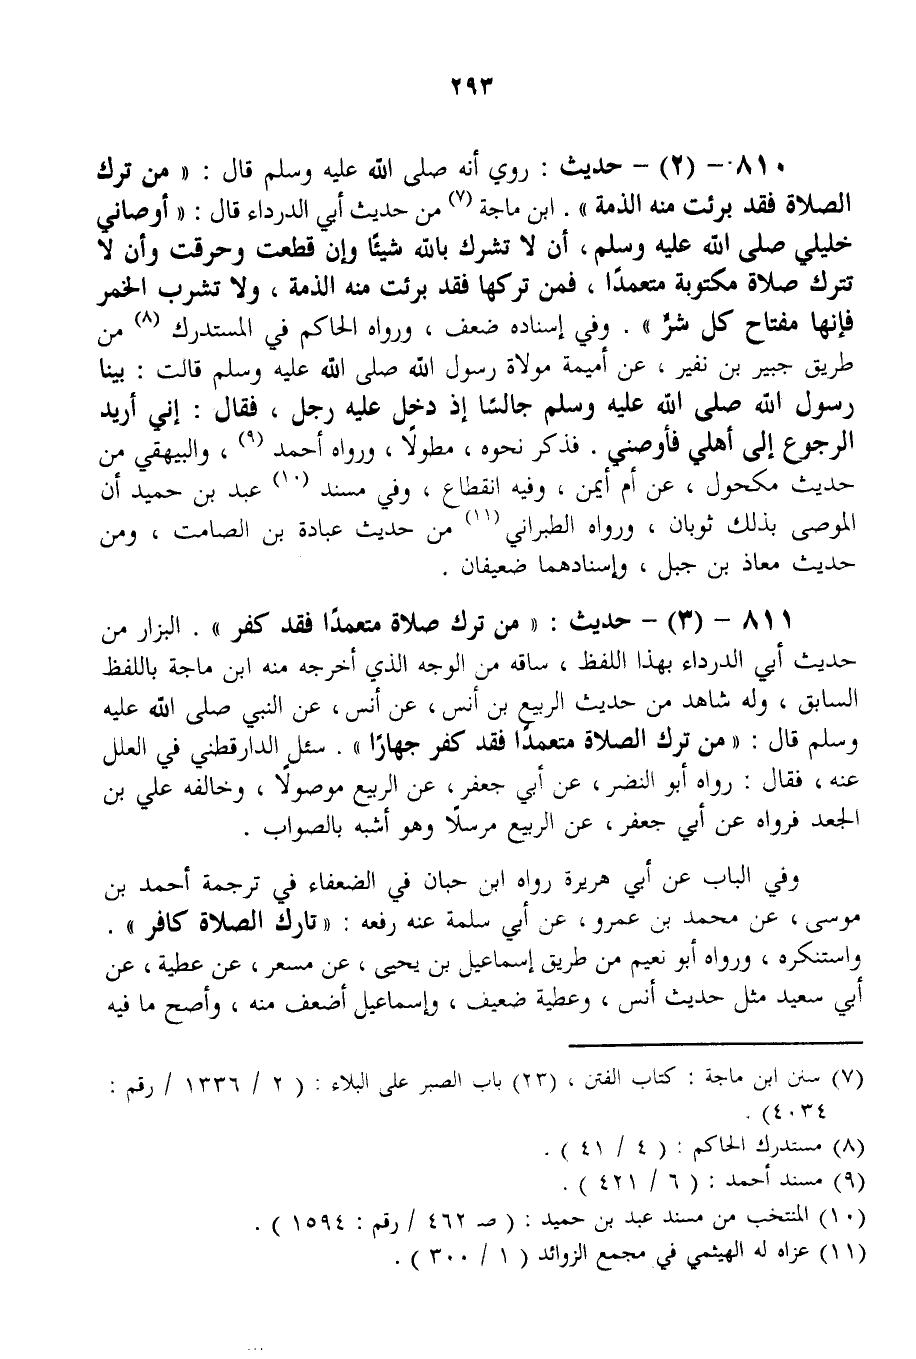 ٢٩٣
٨١٠ - (٢) - حديث : روي أنه صلى الله عليه وسلم قال : « من ترك
الصلاة فقد برئت منه الذمة » . ابن ماجة (٧) من حديث أبي الدرداء قال : « أوصاني
خليلي صلى الله عليه وسلم ، أن لا تشرك بالله شيئًا وإن قطعت وحرقت وأن لا
تترك صلاة مكتوبة متعمدًا ، فمن تركها فقد برئت منه الذمة ، ولا تشرب الخمر
فإنها مفتاح كل شرٍّ » . وفي إسناده ضعف ، ورواه الحاكم في المستدرك (٨) من
طريق جبير بن نفير ، عن أميمة مولاة رسول الله صلى الله عليه وسلم قالت : بينا
رسول الله صلى الله عليه وسلم جالسًا إذ دخل عليه رجل ، فقال : إني أريد
الرجوع إلى أهلي فأوصني . فذكر نحوه ، مطولًا ، ورواه أحمد (٩) ، والبيهقي من
حديث مكحول ، عن أم أيمن ، وفيه انقطاع ، وفي مسند (١٠) عبد بن حميد أن
الموصى بذلك ثوبان ، ورواه الطبراني (١١) من حديث عبادة بن الصامت ، ومن
حديث معاذ بن جبل ، وإسنادهما ضعيفان .
٨١١ - (٣) - حديث : « من ترك صلاة متعمدًا فقد كفر » . البزار من
حديث أبي الدرداء بهذا اللفظ ، ساقه من الوجه الذي أخرجه منه ابن ماجة باللفظ
السابق ، وله شاهد من حديث الربيع بن أنس ، عن أنس ، عن النبي صلى الله عليه
وسلم قال : « من ترك الصلاة متعمدًا فقد كفر جهارًا » . سئل الدارقطني في العلل
عنه ، فقال : رواه أبو النضر ، عن أبي جعفر ، عن الربيع موصولًا ، وخالفه علي بن
الجعد فرواه عن أبي جعفر ، عن الربيع مرسلًا وهو أشبه بالصواب .
وفي الباب عن أبي هريرة رواه ابن حبان في الضعفاء في ترجمة أحمد بن
موسى ، عن محمد بن عمرو ، عن أبي سلمة عنه رفعه : « تارك الصلاة كافر » .
واستنكره ، ورواه أبو نعيم من طريق إسماعيل بن يحيى ، عن مسعر ، عن عطية ، عن
أبي سعيد مثل حديث أنس ، وعطية ضعيف ، وإسماعيل أضعف منه ، وأصح ما فيه
(٧) سنن ابن ماجة : كتاب الفتن ، (٢٣) باب الصبر على البلاء : ( ٢ / ١٣٣٦ / رقم :
٤٠٣٤) .
(٨) مستدرك الحاكم : ( ٤ / ٤١ ) .
(٩) مسند أحمد : ( ٦ / ٤٢١ ) .
(١٠) المنتخب من مسند عبد بن حميد : ( صـ ٤٦٢ / رقم : ١٥٩٤ ) .
(١١) عزاه له الهيثمي في مجمع الزوائد ( ١ / ٣٠٠ ) .